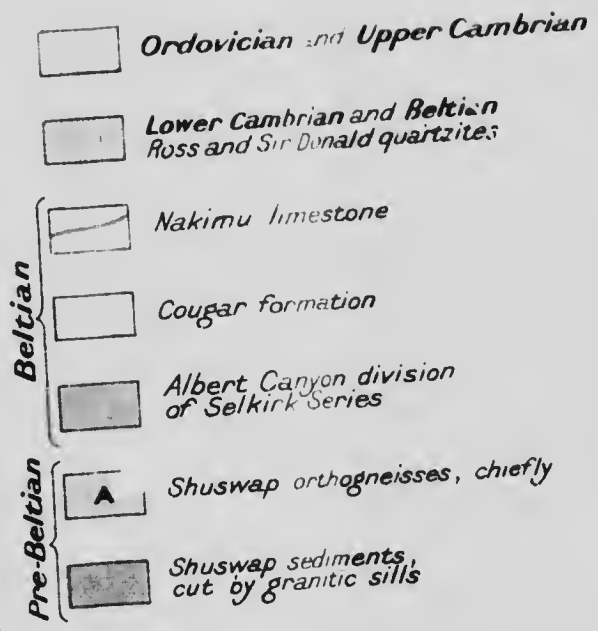 Ordovician and Upper Cambrian
Lower Cambrian and Beltian
Ross and Sir Donald quartzites
Beltian
Nakimu limestone
Cougar formation
Albert Canyon division
of Selkirk Series
Pre-Beltian
A
Shuswap orthogneisses, chiefly
Shuswap sediments,
cut by granitic sills